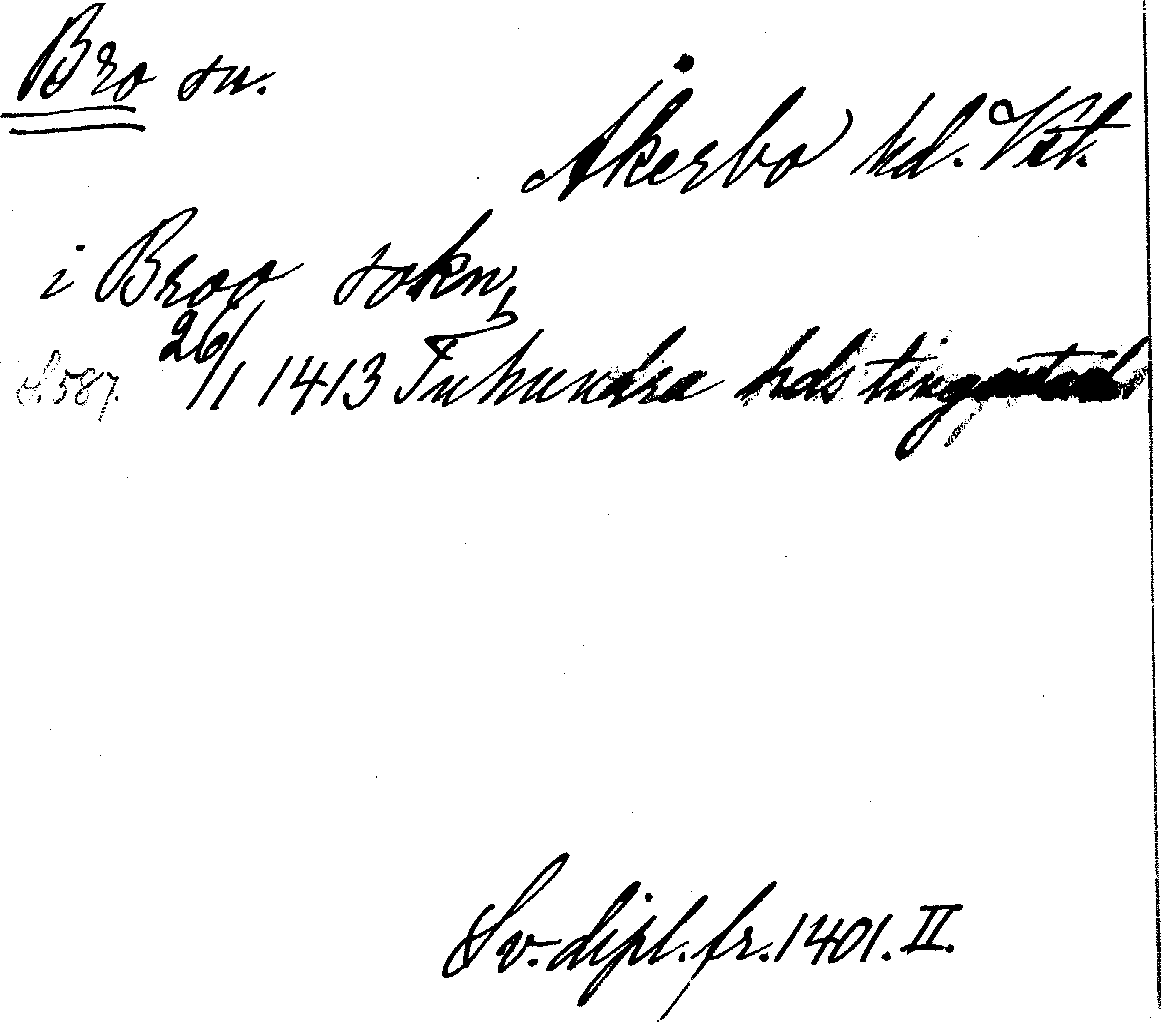 Bro sn.
Åkerbo hd. Vstl.
i Broo sokn,
S. 587. 26/1 1413 Tuhundra hds tingsstad
Sv. dipl. fr. 1401. II.